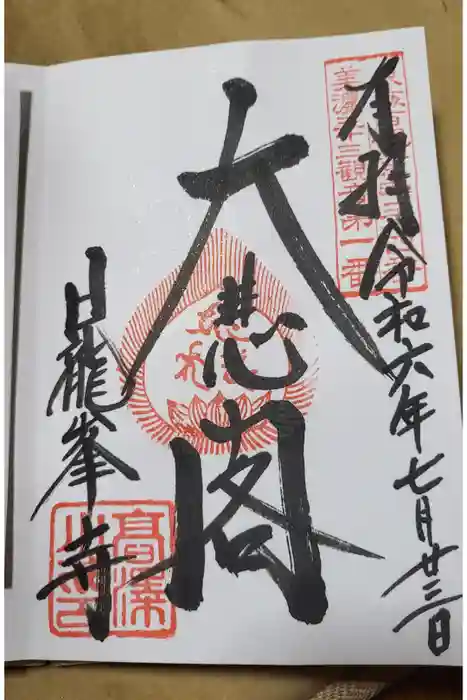 奉拝
令和六年七月廿三日
美濃三十三観音第一番
大悲閣
日龍峯寺
高澤